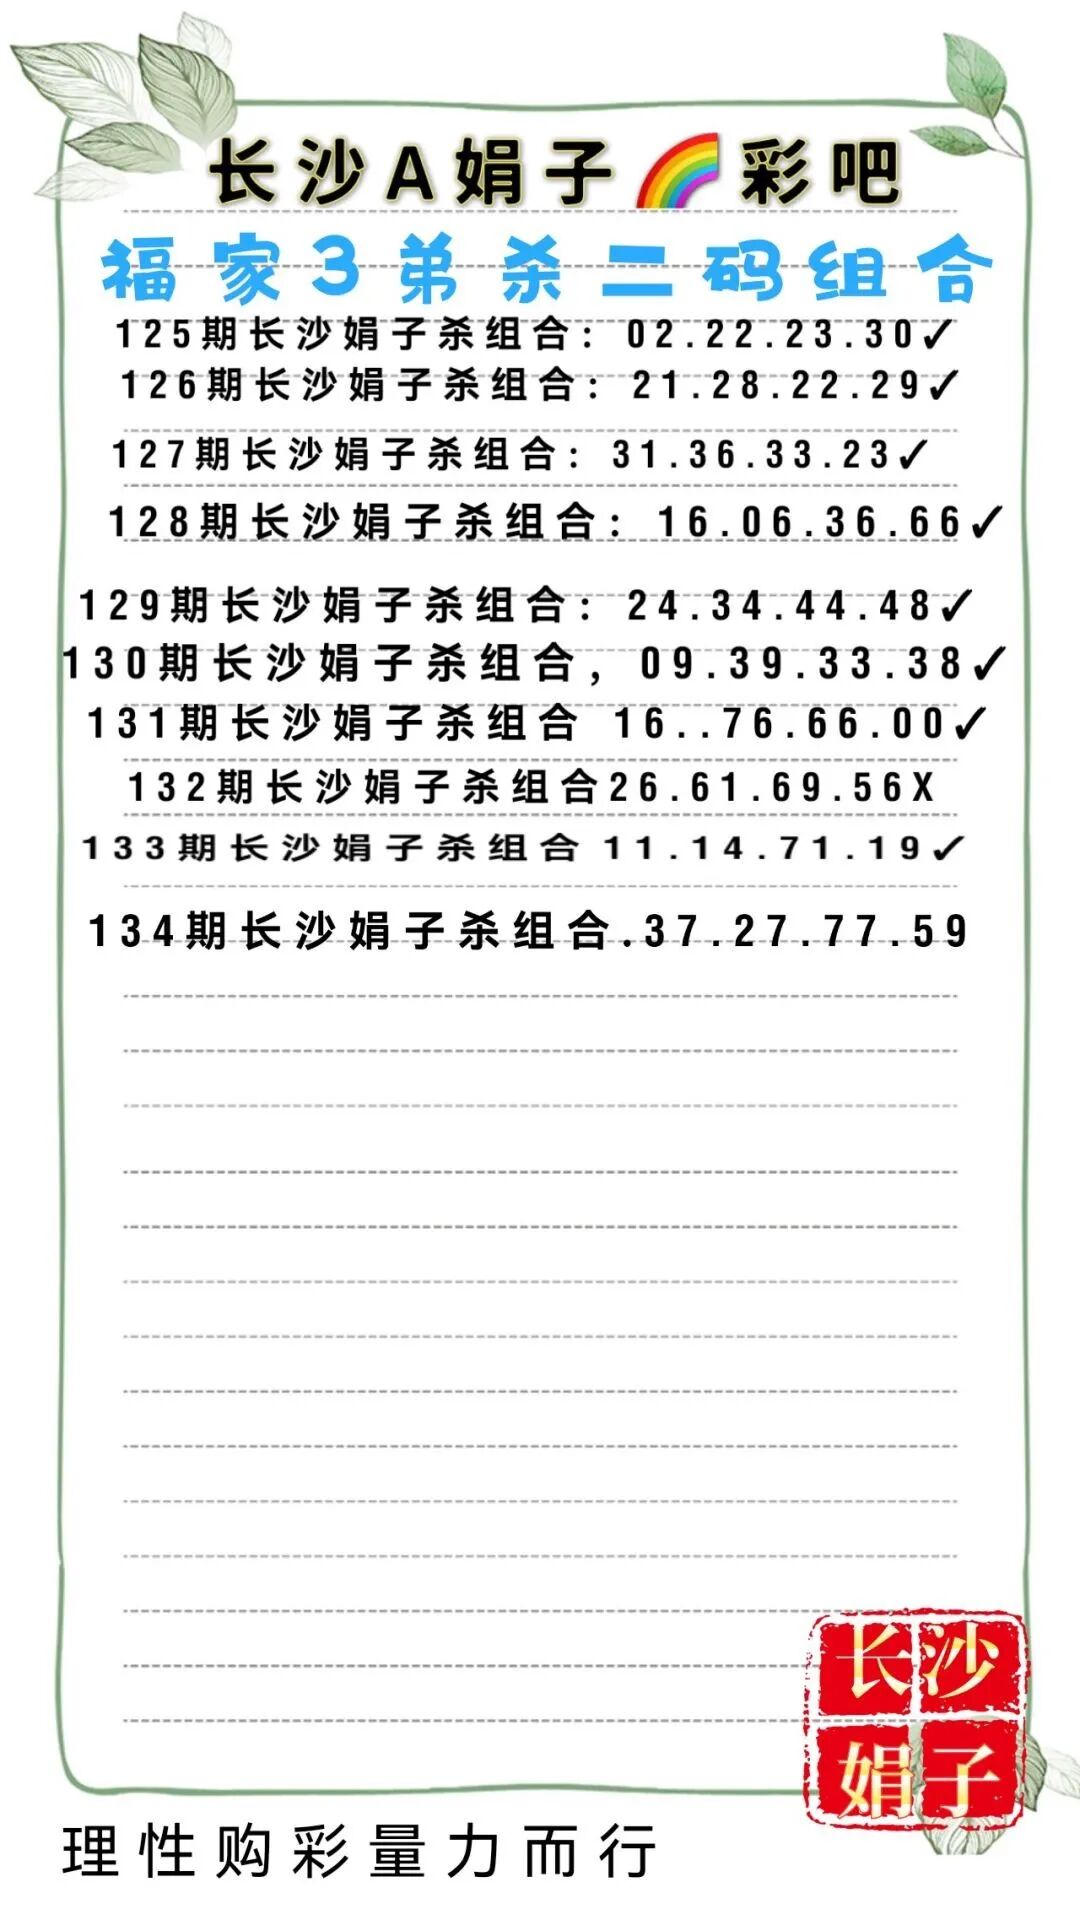 长沙A娟子🌈彩吧
福家3弟杀二码组合
125期长沙娟子杀组合：02.22.23.30✓
126期长沙娟子杀组合：21.28.22.29✓
127期长沙娟子杀组合：31.36.33.23✓
128期长沙娟子杀组合：16.06.36.66✓
129期长沙娟子杀组合：24.34.44.48✓
130期长沙娟子杀组合，09.39.33.38✓
131期长沙娟子杀组合 16..76.66.00✓
132期长沙娟子杀组合26.61.69.56X
133期长沙娟子杀组合 11.14.71.19✓
134期长沙娟子杀组合.37.27.77.59
长沙
娟子
理性购彩量力而行